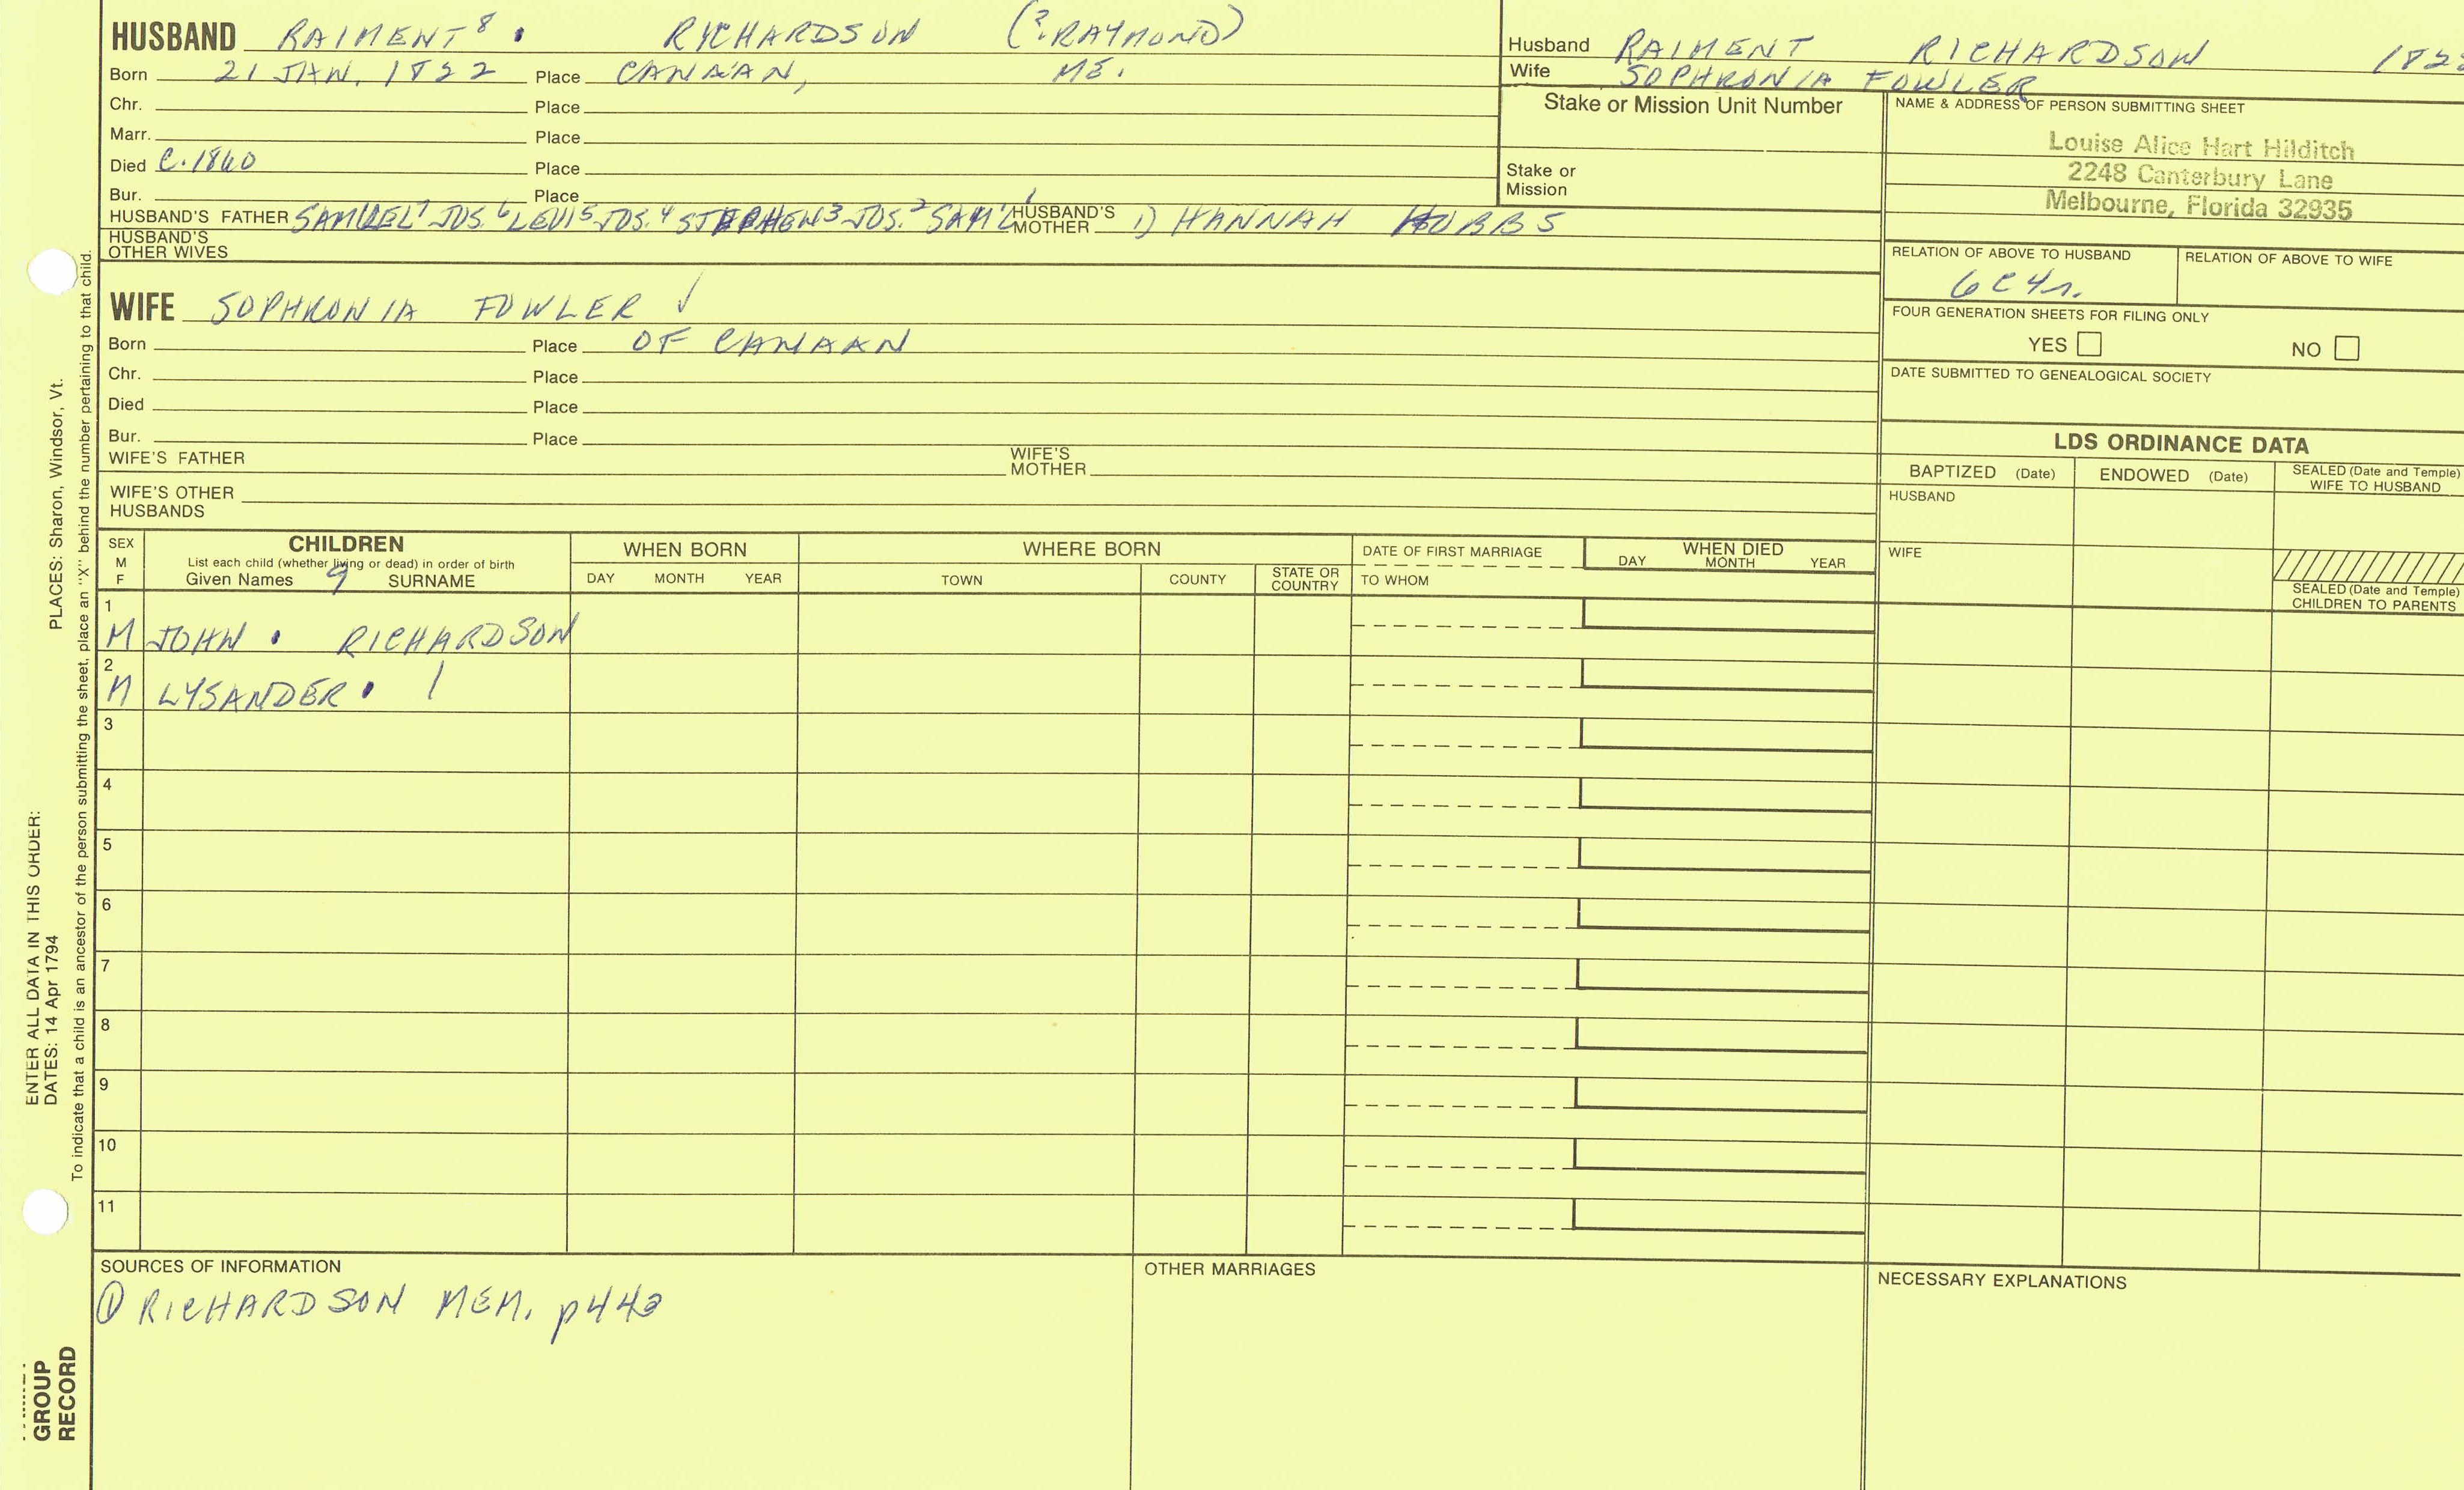 HUSBAND RAIMENT⁸ . RICHARDSON (?.RAYMOND)
Born 21 JAN. 1822 Place CANAAN, ME.
Chr. Place
Marr. Place
Died C. 1860 Place
Bur. Place
HUSBAND'S FATHER SAMUEL⁷ JOS.⁶ LEVI⁵ JOS.⁴ STEPHEN³ JOS.² SAM'L¹ HUSBAND'S MOTHER 1) HANNAH HOBBS
HUSBAND'S OTHER WIVES
WIFE SOPHRONIA FOWLER ✓
Born Place OF CANAAN
Chr. Place
Died Place
Bur. Place
WIFE'S FATHER WIFE'S MOTHER
WIFE'S OTHER HUSBANDS
Husband RAIMENT RICHARDSON
Wife SOPHRONIA FOWLER
Stake or Mission Unit Number
Stake or Mission
NAME & ADDRESS OF PERSON SUBMITTING SHEET
Louise Alice Hart Hilditch
2248 Canterbury Lane
Melbourne, Florida 32935
RELATION OF ABOVE TO HUSBAND RELATION OF ABOVE TO WIFE
6C4r.
FOUR GENERATION SHEETS FOR FILING ONLY
YES NO
DATE SUBMITTED TO GENEALOGICAL SOCIETY
LDS ORDINANCE DATA
BAPTIZED (Date) ENDOWED (Date) SEALED (Date and Temple) WIFE TO HUSBAND
HUSBAND
WIFE
SEALED (Date and Temple) CHILDREN TO PARENTS
SEX M F
CHILDREN
List each child (whether living or dead) in order of birth
Given Names 9 SURNAME
WHEN BORN
DAY MONTH YEAR
WHERE BORN
TOWN COUNTY STATE OR COUNTRY
DATE OF FIRST MARRIAGE
TO WHOM
WHEN DIED
DAY MONTH YEAR
1
M JOHN . RICHARDSON
2
M LYSANDER .
3
4
5
6
7
8
9
10
11
SOURCES OF INFORMATION
① RICHARDSON MEM. p443
OTHER MARRIAGES
NECESSARY EXPLANATIONS
ENTER ALL DATA IN THIS ORDER:
DATES: 14 Apr 1794 PLACES: Sharon, Windsor, Vt.
To indicate that a child is an ancestor of the person submitting the sheet, place an "X" behind the number pertaining to that child.
GROUP
RECORD